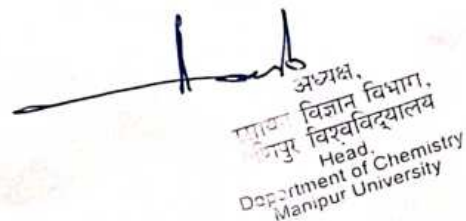 अध्यक्ष,
विज्ञान विभाग,
विश्वविद्यालय
Head,
Department of Chemistry
Manipur University